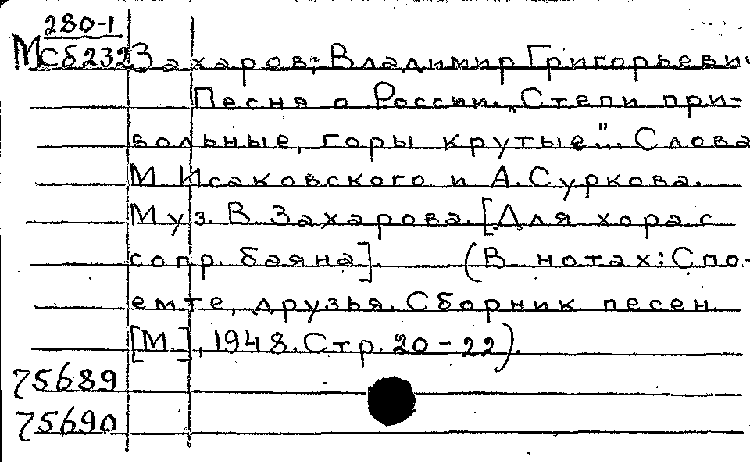 280-1
МСб232 Захаров, Владимир Григорьевич
Песня о России. „Степи при-
вольные, горы крутые"... Слова
М. Исаковского и А. Суркова.
Муз. В. Захарова. [Для хора с
сопр. баяна]. (В нотах: Спо-
емте, друзья. Сборник песен
[М.], 1948. Стр. 20-22).
75689
75690